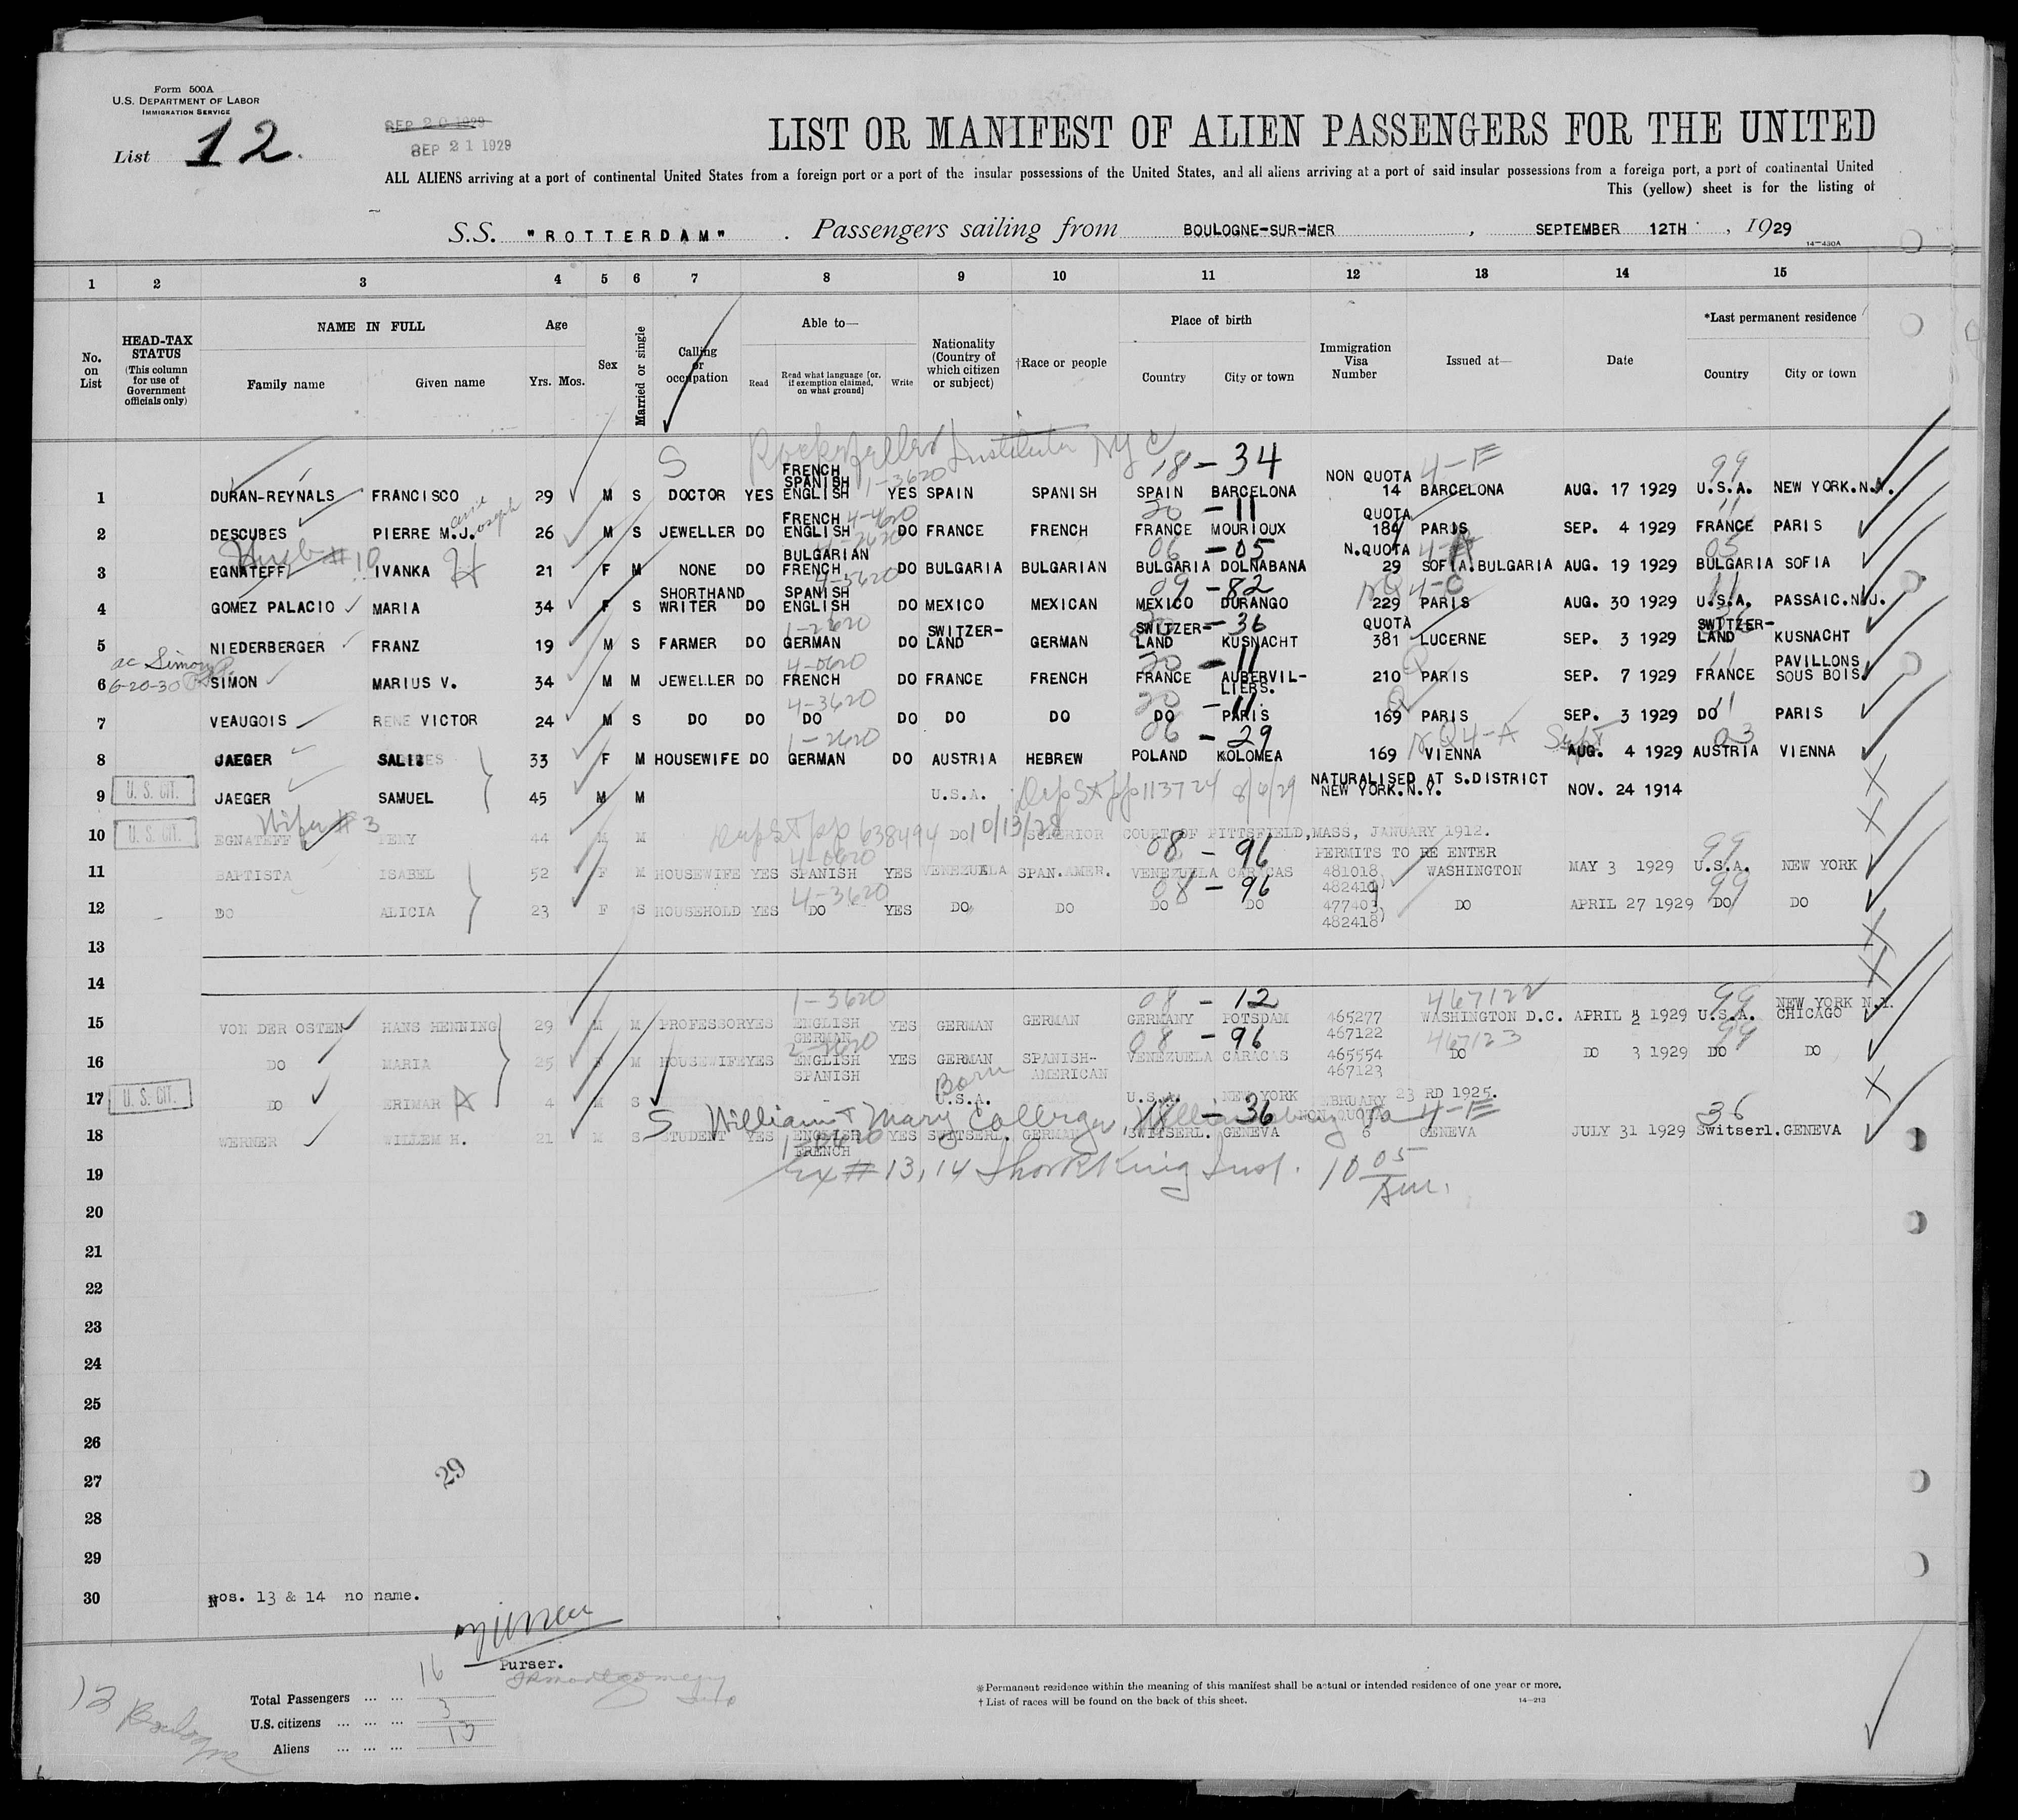 Form 500A
U.S. DEPARTMENT OF LABOR
IMMIGRATION SERVICE
List 12.
SEP 20 1929
SEP 21 1929
LIST OR MANIFEST OF ALIEN PASSENGERS FOR THE UNITED
ALL ALIENS arriving at a port of continental United States from a foreign port or a port of the insular possessions of the United States, and all aliens arriving at a port of said insular possessions from a foreign port, a port of continental United
This (yellow) sheet is for the listing of
S.S. "ROTTERDAM" . Passengers sailing from BOULOGNE-SUR-MER , SEPTEMBER 12TH , 1929
14—430A
1 2 3 4 5 6 7 8 9 10 11 12 13 14 15
No. on List
HEAD-TAX STATUS (This column for use of Government officials only)
NAME IN FULL
Family name Given name
Age
Yrs. Mos.
Sex
Married or single
Calling or occupation
Able to—
Read Read what language [or, if exemption claimed, on what ground] Write
Nationality (Country of which citizen or subject)
†Race or people
Place of birth
Country City or town
Immigration Visa Number
Issued at—
Date
*Last permanent residence
Country City or town
S Rockefeller Institute NYC 18 - 34 4-E 99
FRENCH SPANISH 1-3620 NON QUOTA
1 DURAN-REYNALS FRANCISCO 29 M S DOCTOR YES ENGLISH YES SPAIN SPANISH SPAIN BARCELONA 14 BARCELONA AUG. 17 1929 U.S.A. NEW YORK.N.Y.
FRENCH 4-4620 20 - 11 QUOTA 11
2 DESCUBES PIERRE M.J. Joseph 26 M S JEWELLER DO ENGLISH DO FRANCE FRENCH FRANCE MOURIOUX 184 PARIS SEP. 4 1929 FRANCE PARIS
Husb #10 BULGARIAN 4-2620 06 - 05 N.QUOTA 4-A 05
3 EGNATEFF IVANKA 21 F M NONE DO FRENCH DO BULGARIA BULGARIAN BULGARIA DOLNABANA 29 SOFIA.BULGARIA AUG. 19 1929 BULGARIA SOFIA
SHORTHAND SPANISH 4-3620 09 - 82 NQ 4-C
4 GOMEZ PALACIO MARIA 34 F S WRITER DO ENGLISH DO MEXICO MEXICAN MEXICO DURANGO 229 PARIS AUG. 30 1929 U.S.A. PASSAIC.N.J.
1-2620 SWITZER- SWITZER- - 36 QUOTA SWITZER-
5 NIEDERBERGER FRANZ 19 M S FARMER DO GERMAN DO LAND GERMAN LAND KUSNACHT 381 LUCERNE SEP. 3 1929 LAND KUSNACHT
ac Simon 6-20-30 4-0620 20 - 11 Q 11 PAVILLONS
6 SIMON MARIUS V. 34 M M JEWELLER DO FRENCH DO FRANCE FRENCH FRANCE AUBERVIL-LIERS. 210 PARIS SEP. 7 1929 FRANCE SOUS BOIS
4-3620 20 - 11 Q 11
7 VEAUGOIS RENE VICTOR 24 M S DO DO DO DO DO DO DO PARIS 169 PARIS SEP. 3 1929 DO PARIS
1-2620 06 - 29 NQ4-A Sept 03
8 JAEGER 33 F M HOUSEWIFE DO GERMAN DO AUSTRIA HEBREW POLAND KOLOMEA 169 VIENNA AUG. 4 1929 AUSTRIA VIENNA
U. S. CIT.
9 JAEGER SAMUEL 45 M M U.S.A. 113724 8/6/29 NATURALISED AT S.DISTRICT NEW YORK.N.Y. NOV. 24 1914
U. S. CIT. Wife #3
10 EGNATEFF 44 M M 638494 DO 10/13/28 SUPERIOR COURT OF PITTSFIELD,MASS, JANUARY 1912.
4-0620 08 - 96 PERMITS TO RE ENTER 99
11 BAPTISTA ISABEL 52 F M HOUSEWIFE YES SPANISH YES VENEZUELA SPAN.AMER. VENEZUELA CARACAS 481018 WASHINGTON MAY 3 1929 U.S.A. NEW YORK
4-3620 08 - 96 482419) 99
12 DO ALICIA 23 F S HOUSEHOLD YES DO YES DO DO DO DO 477403 DO APRIL 27 1929 DO DO
482418)
13
14
1-3620 08 - 12 467122 99 NEW YORK N.Y.
15 VON DER OSTEN HANS HENNING 29 M M PROFESSOR YES ENGLISH GERMAN YES GERMAN GERMAN GERMANY POTSDAM 465277 467122 WASHINGTON D.C. APRIL 2 1929 U.S.A. CHICAGO
2-2620 08 - 96 467123 99
16 DO MARIA 25 F M HOUSEWIFE YES ENGLISH SPANISH YES GERMAN SPANISH-AMERICAN VENEZUELA CARACAS 465554 467123 DO DO 3 1929 DO DO
U. S. CIT. Born
17 DO ERIMAR 4 M S U.S.A. U.S.A. NEW YORK FEBRUARY 23 RD 1925.
S William & Mary College, Williamsburg Va - 36 NON QUOTA 4-E 36
18 WERNER WILLEM H. 21 M S STUDENT YES ENGLISH FRENCH YES SWITSERL. GERMAN SWITSERL. GENEVA 6 GENEVA JULY 31 1929 Switserl. GENEVA
19 Ex # 13, 14 Insp. 10 05 Am.
20
21
22
23
24
25
26
27
29
28
29
30 Nos. 13 & 14 no name.
Purser.
12 Boulogne
Total Passengers ... ... 16
U.S. citizens ... ... ... 3
Aliens ... ... ... 13
*Permanent residence within the meaning of this manifest shall be actual or intended residence of one year or more.
† List of races will be found on the back of this sheet. 14—213